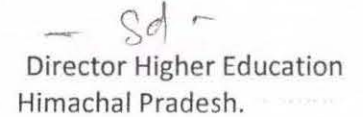 - Sd -
Director Higher Education
Himachal Pradesh.